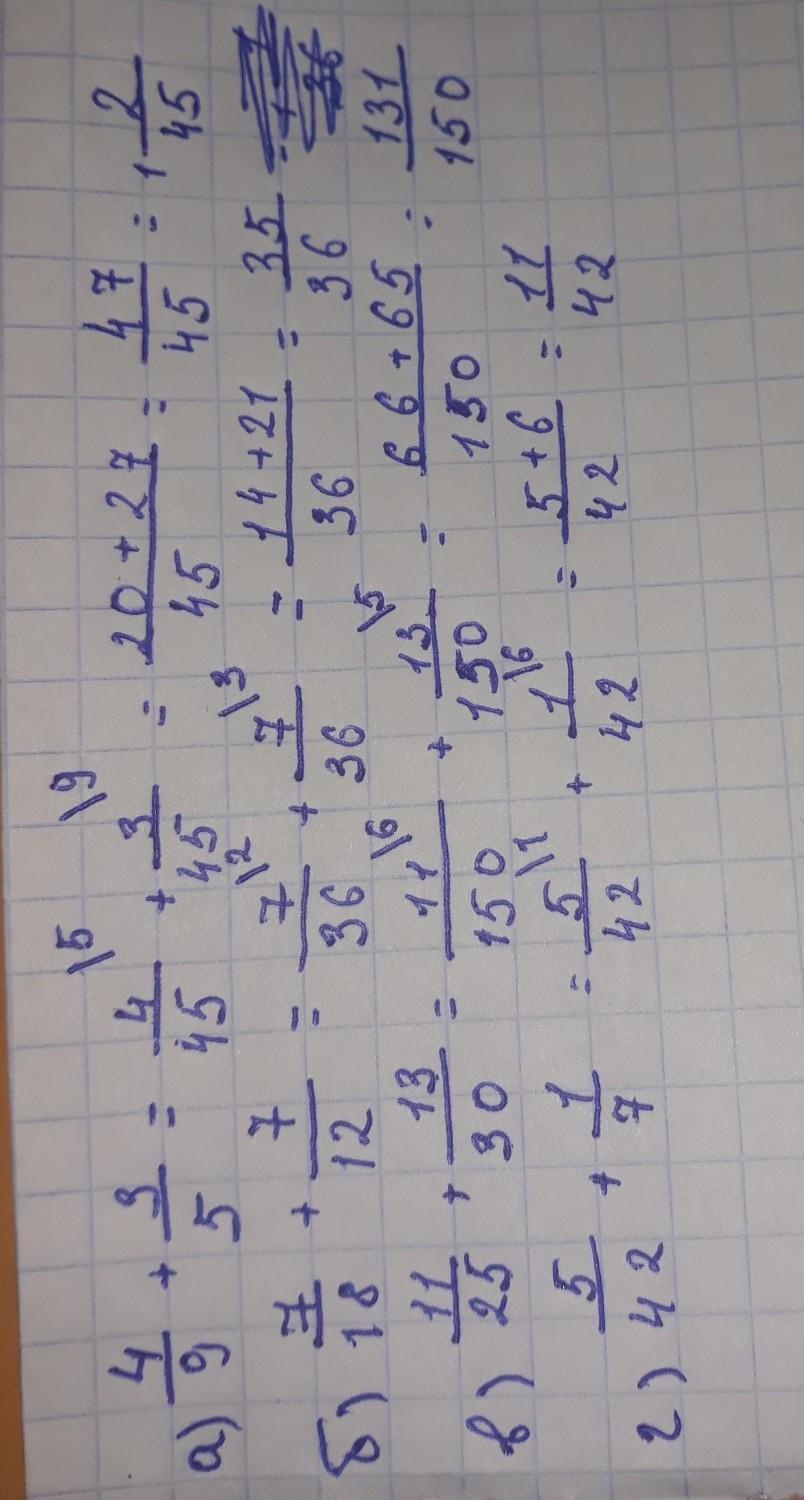 а) 4/9 + 3/5 = 4\5/45 + 3\9/45 = 20+27/45 = 47/45 = 1 2/45
б) 7/18 + 7/12 = 7\2/36 + 7\3/36 = 14+21/36 = 35/36
в) 11/25 + 13/30 = 11\6/150 + 13\5/150 = 66+65/150 = 131/150
г) 5/42 + 1/7 = 5\1/42 + 1\6/42 = 5+6/42 = 11/42